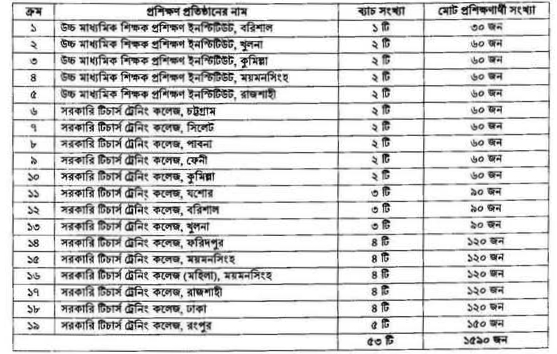 ক্রম প্রশিক্ষণ প্রতিষ্ঠানের নাম ব্যাচ সংখ্যা মোট প্রশিক্ষণার্থী সংখ্যা
১ উচ্চ মাধ্যমিক শিক্ষক প্রশিক্ষণ ইনস্টিটিউট, বরিশাল ১ টি ৩০ জন
২ উচ্চ মাধ্যমিক শিক্ষক প্রশিক্ষণ ইনস্টিটিউট, খুলনা ২ টি ৬০ জন
৩ উচ্চ মাধ্যমিক শিক্ষক প্রশিক্ষণ ইনস্টিটিউট, কুমিল্লা ২ টি ৬০ জন
৪ উচ্চ মাধ্যমিক শিক্ষক প্রশিক্ষণ ইনস্টিটিউট, ময়মনসিংহ ২ টি ৬০ জন
৫ উচ্চ মাধ্যমিক শিক্ষক প্রশিক্ষণ ইনস্টিটিউট, রাজশাহী ২ টি ৬০ জন
৬ সরকারি টিচার্স ট্রেনিং কলেজ, চট্টগ্রাম ২ টি ৬০ জন
৭ সরকারি টিচার্স ট্রেনিং কলেজ, সিলেট ২ টি ৬০ জন
৮ সরকারি টিচার্স ট্রেনিং কলেজ, পাবনা ২ টি ৬০ জন
৯ সরকারি টিচার্স ট্রেনিং কলেজ, ফেনী ২ টি ৬০ জন
১০ সরকারি টিচার্স ট্রেনিং কলেজ, কুমিল্লা ২ টি ৬০ জন
১১ সরকারি টিচার্স ট্রেনিং কলেজ, যশোর ৩ টি ৯০ জন
১২ সরকারি টিচার্স ট্রেনিং কলেজ, বরিশাল ৩ টি ৯০ জন
১৩ সরকারি টিচার্স ট্রেনিং কলেজ, খুলনা ৩ টি ৯০ জন
১৪ সরকারি টিচার্স ট্রেনিং কলেজ, ফরিদপুর ৪ টি ১২০ জন
১৫ সরকারি টিচার্স ট্রেনিং কলেজ, ময়মনসিংহ ৪ টি ১২০ জন
১৬ সরকারি টিচার্স ট্রেনিং কলেজ (মহিলা), ময়মনসিংহ ৪ টি ১২০ জন
১৭ সরকারি টিচার্স ট্রেনিং কলেজ, রাজশাহী ৪ টি ১২০ জন
১৮ সরকারি টিচার্স ট্রেনিং কলেজ, ঢাকা ৪ টি ১২০ জন
১৯ সরকারি টিচার্স ট্রেনিং কলেজ, রংপুর ৫ টি ১৫০ জন
৫৩ টি ১৫৯০ জন